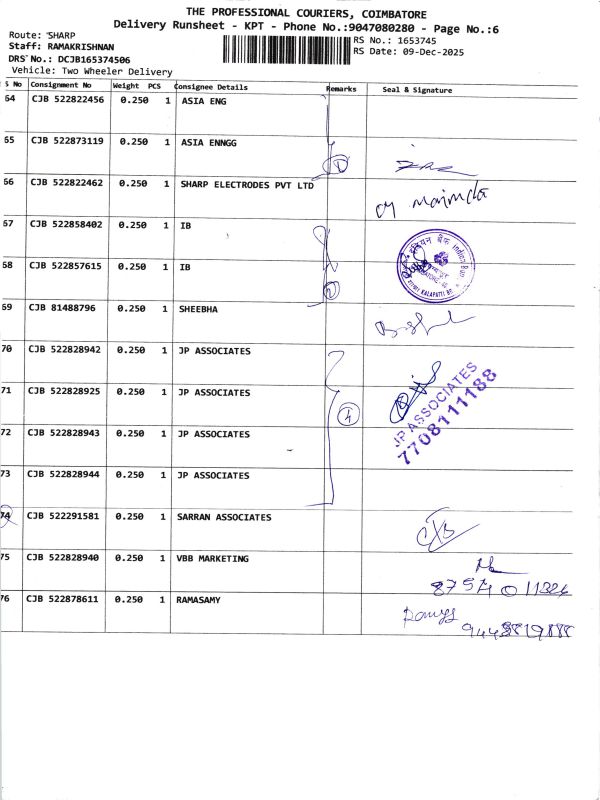 THE PROFESSIONAL COURIERS, COIMBATORE
Delivery Runsheet - KPT - Phone No.:9047080280 - Page No.:6
Route: SHARP
RS No.: 1653745
Staff: RAMAKRISHNAN
RS Date: 09-Dec-2025
DRS No.: DCJB165374506
Vehicle: Two Wheeler Delivery
S No Consignment No Weight PCS Consignee Details Remarks Seal & Signature
64 CJB 522822456 0.250 1 ASIA ENG
65 CJB 522873119 0.250 1 ASIA ENNGG
66 CJB 522822462 0.250 1 SHARP ELECTRODES PVT LTD
67 CJB 522858402 0.250 1 IB
68 CJB 522857615 0.250 1 IB 2
69 CJB 81488796 0.250 1 SHEEBHA
70 CJB 522828942 0.250 1 JP ASSOCIATES
71 CJB 522828925 0.250 1 JP ASSOCIATES 4
JP ASSOCIATES
7708111188
72 CJB 522828943 0.250 1 JP ASSOCIATES
73 CJB 522828944 0.250 1 JP ASSOCIATES
74 CJB 522291581 0.250 1 SARRAN ASSOCIATES
75 CJB 522828940 0.250 1 VBB MARKETING
76 CJB 522878611 0.250 1 RAMASAMY